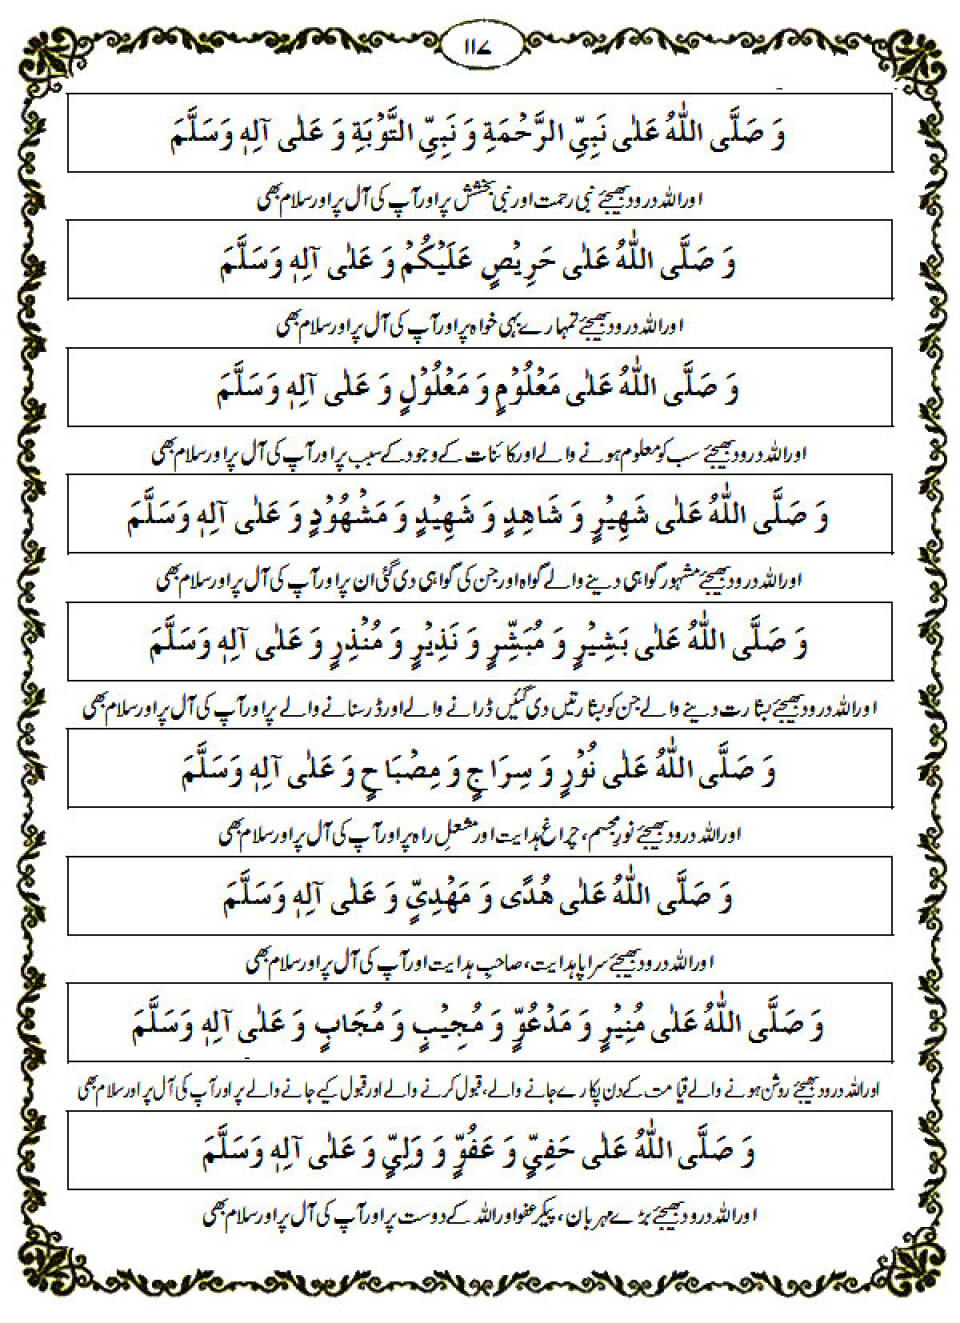 ۱۱۷
وَ صَلَّى اللّٰهُ عَلٰى نَبِيِّ الرَّحْمَةِ وَ نَبِيِّ التَّوْبَةِ وَ عَلٰى آلِهٖ وَسَلَّمَ
اور اللہ درود بھیجئے نبی رحمت اور نبی بخشش پر اور آپ کی آل پر اور سلام بھی
وَ صَلَّى اللّٰهُ عَلٰى حَرِيْصٍ عَلَيْكُمْ وَ عَلٰى آلِهٖ وَسَلَّمَ
اور اللہ درود بھیجئے تمہارے بہی خواہ پر اور آپ کی آل پر اور سلام بھی
وَ صَلَّى اللّٰهُ عَلٰى مَعْلُوْمٍ وَ مَعْلُوْلٍ وَ عَلٰى آلِهٖ وَسَلَّمَ
اور اللہ درود بھیجئے سب کو معلوم ہونے والے اور کائنات کے وجود کے سبب پر اور آپ کی آل پر اور سلام بھی
وَ صَلَّى اللّٰهُ عَلٰى شَهِيْرٍ وَ شَاهِدٍ وَ شَهِيْدٍ وَ مَشْهُوْدٍ وَ عَلٰى آلِهٖ وَسَلَّمَ
اور اللہ درود بھیجئے مشہور گواہی دینے والے گواہ اور جن کی گواہی دی گئی ان پر اور آپ کی آل پر اور سلام بھی
وَ صَلَّى اللّٰهُ عَلٰى بَشِيْرٍ وَ مُبَشِّرٍ وَ نَذِيْرٍ وَ مُنْذِرٍ وَ عَلٰى آلِهٖ وَسَلَّمَ
اور اللہ درود بھیجئے بشارت دینے والے جن کو بشارتیں دی گئیں ڈرانے والے اور ڈر سنانے والے پر اور آپ کی آل پر اور سلام بھی
وَ صَلَّى اللّٰهُ عَلٰى نُوْرٍ وَ سِرَاجٍ وَ مِصْبَاحٍ وَ عَلٰى آلِهٖ وَسَلَّمَ
اور اللہ درود بھیجئے نورِ مجسم، چراغ ہدایت اور مشعلِ راہ پر اور آپ کی آل پر اور سلام بھی
وَ صَلَّى اللّٰهُ عَلٰى هُدًى وَ مَهْدِيٍّ وَ عَلٰى آلِهٖ وَسَلَّمَ
اور اللہ درود بھیجئے سراپا ہدایت، صاحبِ ہدایت اور آپ کی آل پر اور سلام بھی
وَ صَلَّى اللّٰهُ عَلٰى مُنِيْرٍ وَ مَدْعُوٍّ وَ مُجِيْبٍ وَ مُجَابٍ وَ عَلٰى آلِهٖ وَسَلَّمَ
اور اللہ درود بھیجئے روشن ہونے والے قیامت کے دن پکارے جانے والے، قبول کرنے والے اور قبول کیے جانے والے پر اور آپ کی آل پر اور سلام بھی
وَ صَلَّى اللّٰهُ عَلٰى حَفِيٍّ وَ عَفُوٍّ وَ وَلِيٍّ وَ عَلٰى آلِهٖ وَسَلَّمَ
اور اللہ درود بھیجئے بڑے مہربان، پیکر عفو اور اللہ کے دوست پر اور آپ کی آل پر اور سلام بھی